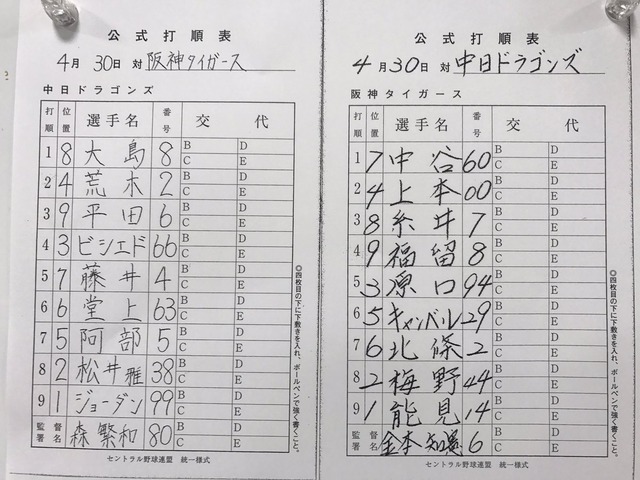 公式打順表
4月30日 対 阪神タイガース
中日ドラゴンズ
打順 位置 選手名 番号 交代
1 8 大島 8 B D C E
2 4 荒木 2 B D C E
3 9 平田 6 B D C E
4 3 ビシエド 66 B D C E
5 7 藤井 4 B D C E
6 6 堂上 63 B D C E
7 5 阿部 5 B D C E
8 2 松井雅 38 B D C E
9 1 ジョーダン 99 B D C E
監督署名 森繁和 80 B D C E
セントラル野球連盟 統一様式
◎四枚目の下に下敷きを入れ、ボールペンで強く書くこと。
公式打順表
4月30日 対 中日ドラゴンズ
阪神タイガース
打順 位置 選手名 番号 交代
1 7 中谷 60 B D C E
2 4 上本 00 B D C E
3 8 糸井 7 B D C E
4 9 福留 8 B D C E
5 3 原口 94 B D C E
6 5 キャンベル 29 B D C E
7 6 北條 2 B D C E
8 2 梅野 44 B D C E
9 1 能見 14 B D C E
監督署名 金本知憲 6 B D C E
セントラル野球連盟 統一様式
◎四枚目の下に下敷きを入れ、ボールペンで強く書くこと。